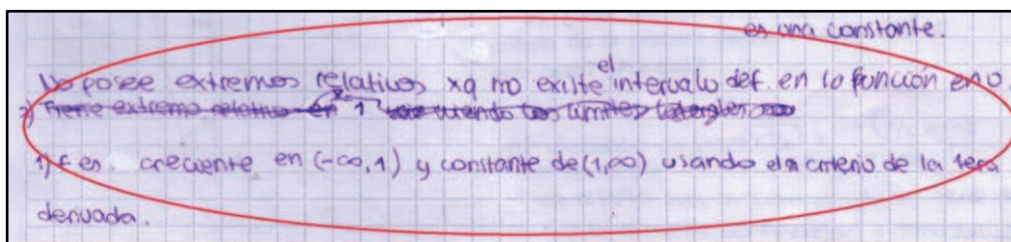 es una constante.
No posee extremos relativos xq no existe el intervalo def. en la función en 0.
2) Tiene extremo relativo en 1 viendo los límites laterales
1) f es creciente en (-∞,1) y constante de (1,∞) usando el criterio de la 1era
derivada.